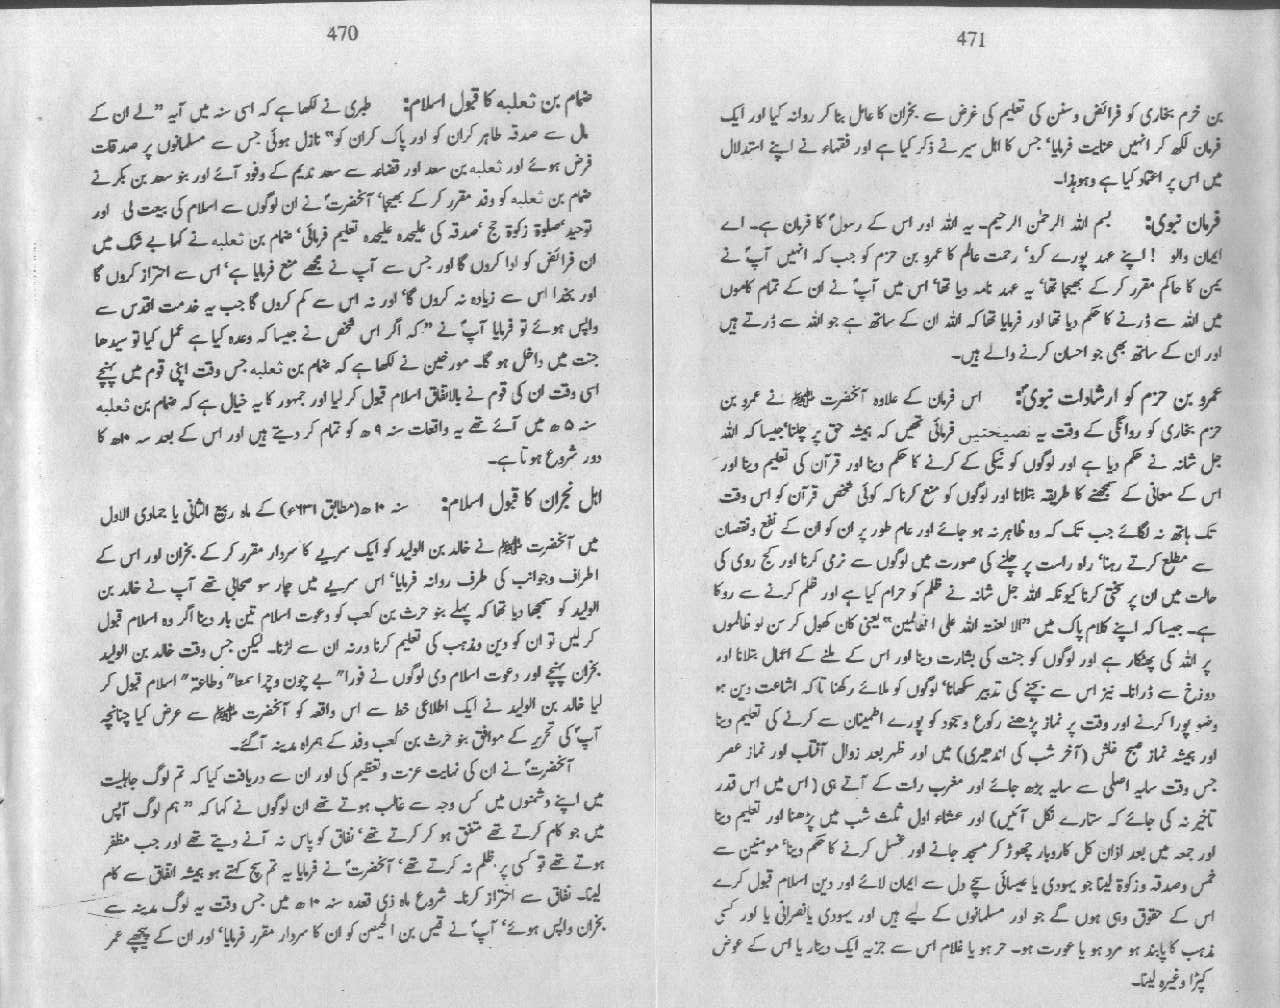 470
ضمام بن ثعلبہ کا قبول اسلام: طبری نے لکھا ہے کہ اسی سنہ میں آیہ "لے ان کے
مال سے صدقہ طاہر کران کو اور پاک کران کو" نازل ہوئی جس سے مسلمانوں پر صدقات
فرض ہوئے اور ثعلبہ بن سعد اور قضاعہ سے سعد ندیم کے وفود آئے اور بنو سعد بن بکر نے
ضمام بن ثعلبہ کو وفد مقرر کر کے بھیجا' آنحضرتؐ نے ان لوگوں سے اسلام کی بیعت لی اور
توحید' صلوۃ زکوۃ حج' صدقہ کی علیحدہ علیحدہ تعلیم فرمائی' ضمام بن ثعلبہ نے کہا بے شک میں
ان فرائض کو ادا کروں گا اور جس سے آپ نے مجھے منع فرمایا ہے' اس سے احتراز کروں گا
اور بخدا اس سے زیادہ نہ کروں گا' اور نہ اس سے کم کروں گا جب یہ خدمت اقدس سے
واپس ہوئے تو فرمایا آپؐ نے "کہ اگر اس شخص نے جیسا کہ وعدہ کیا ہے عمل کیا تو سیدھا
جنت میں داخل ہو گا۔ مورخین نے لکھا ہے کہ ضمام بن ثعلبہ جس وقت اپنی قوم میں پہنچے
اسی وقت ان کی قوم نے بالاتفاق اسلام قبول کر لیا اور جمہور کا یہ خیال ہے کہ ضمام بن ثعلبہ
سنہ ۵ھ میں آئے تھے یہ واقعات سنہ ۹ھ کو تمام کر دیتے ہیں اور اس کے بعد سہ ۱۰ھ کا
دور شروع ہوتا ہے۔
اہل نجران کا قبول اسلام: سنہ ۱۰ھ (مطابق ۶۳۱ء) کے ماہ ربیع الثانی یا جمادی الاول
میں آنحضرت ﷺ نے خالد بن الولید کو ایک سریے کا سردار مقرر کر کے بخران اور اس کے
اطراف وجوانب کی طرف روانہ فرمایا' اس سریے میں چار سو صحابی تھے آپ نے خالد بن
الولید کو سمجھا دیا تھا کہ پہلے بنو حرث بن کعب کو دعوت اسلام تین بار دینا اگر وہ اسلام قبول
کر لیں تو ان کو دین و مذہب کی تعلیم کرنا ورنہ ان سے لڑنا۔ لیکن جس وقت خالد بن الولید
بخران پہنچے اور دعوت اسلام دی لوگوں نے فورا" بے چون و چرا سمعا" وطاعۃ" اسلام قبول کر
لیا خالد بن الولید نے ایک اطلاعی خط سے اس واقعہ کو آنحضرت ﷺ سے عرض کیا چنانچہ
آپؐ کی تحریر کے موافق بنو حرث بن کعب وفد کے ہمراہ مدینہ آگئے۔
آنحضرتؐ نے ان کی نہایت عزت و تعظیم کی اور ان سے دریافت کیا کہ تم لوگ جاہلیت
میں اپنے دشمنوں میں کس وجہ سے غالب ہوتے تھے ان لوگوں نے کہا کہ "ہم لوگ آپس
میں جو کام کرتے تھے متفق ہو کر کرتے تھے' نفاق کو پاس نہ آنے دیتے تھے اور جب مظفر
ہوتے تھے تو کسی پر ظلم نہ کرتے تھے' آنحضرتؐ نے فرمایا یہ تم سچ کہتے ہو ہمیشہ اتفاق سے کام
لینا۔ نفاق سے احتراز کرنا۔ شروع ماہ ذی قعدہ سنہ ۱۰ھ میں جس وقت یہ لوگ مدینہ سے
بخران واپس ہوئے' آپؐ نے قیس بن الحصین کو ان کا سردار مقرر فرمایا' اور ان کے پیچھے عمر
471
بن خرم بخاری کو فرائض و سنن کی تعلیم کی غرض سے بخران کا عامل بنا کر روانہ کیا اور ایک
فرمان لکھ کر انہیں عنایت فرمایا' جس کا اہل سیر نے ذکر کیا ہے اور فقہاء نے اپنے استدلال
میں اس پر اعتماد کیا ہے وہو ہذا۔
فرمان نبوی: بسم اللہ الرحمٰن الرحیم۔ یہ اللہ اور اس کے رسولؐ کا فرمان ہے۔ اے
ایمان والو ! اپنے عہد پورے کرو' رحمت عالم کا عمرو بن حزم کو جب کہ انہیں آپؐ نے
یمن کا حاکم مقرر کر کے بھیجا تھا' یہ عہد نامہ دیا تھا' اس میں آپؐ نے ان کے تمام کاموں
میں اللہ سے ڈرنے کا حکم دیا تھا اور فرمایا تھا کہ اللہ ان کے ساتھ ہے جو اللہ سے ڈرتے ہیں
اور ان کے ساتھ بھی جو احسان کرنے والے ہیں۔
عمرو بن حزم کو ارشادات نبویؐ: اس فرمان کے علاوہ آنحضرت ﷺ نے عمرو بن
حزم بخاری کو روانگی کے وقت یہ نصیحتیں فرمائی تھیں کہ ہمیشہ حق پر چلنا' جیسا کہ اللہ
جل شانہ نے حکم دیا ہے اور لوگوں کو نیکی کے کرنے کا حکم دینا اور قرآن کی تعلیم دینا اور
اس کے معانی کے سمجھنے کا طریقہ بتلانا اور لوگوں کو منع کرنا کہ کوئی شخص قرآن کو اس وقت
تک ہاتھ نہ لگائے جب تک کہ وہ ظاہر نہ ہو جائے اور عام طور پر ان کو ان کے نفع و نقصان
سے مطلع کرتے رہنا' راہ راست پر چلنے کی صورت میں لوگوں سے نرمی کرنا اور کج روی کی
حالت میں ان پر سختی کرنا کیونکہ اللہ جل شانہ نے ظلم کو حرام کیا ہے اور ظلم کرنے سے روکا
ہے۔ جیسا کہ اپنے کلام پاک میں "الا لعنتہ اللہ علی الظالمین" یعنی کان کھول کر سن لو ظالموں
پر اللہ کی پھٹکار ہے اور لوگوں کو جنت کی بشارت دینا اور اس کے ملنے کے اعمال بتلانا اور
دوزخ سے ڈرانا۔ نیز اس سے بچنے کی تدبیر سکھانا' لوگوں کو ملائے رکھنا تاکہ اشاعت دین ہو
وضو پورا کرنے اور وقت پر نماز پڑھنے رکوع و سجود کو پورے اطمینان سے کرنے کی تعلیم دینا
اور ہمیشہ نماز صبح غلس (آخر شب کی اندھیری) میں اور ظہر بعد زوال آفتاب اور نماز عصر
جس وقت سایہ اصلی سے سایہ بڑھ جائے اور مغرب رات کے آتے ہی (اس میں اس قدر
تاخیر نہ کی جائے کہ ستارے نکل آئیں) اور عشاء اول ثلث شب میں پڑھنا اور تعلیم دینا
اور جمعہ میں بعد اذان کل کاروبار چھوڑ کر مسجد جانے اور غسل کرنے کا حکم دینا' مومنین سے
خمس و صدقہ و زکوۃ لینا جو یہودی یا عیسائی سچے دل سے ایمان لائے اور دین اسلام قبول کرے
اس کے حقوق وہی ہوں گے جو اور مسلمانوں کے لیے ہیں اور یہودی یا نصرانی یا اور کسی
مذہب کا پابند ہو مرد ہو یا عورت ہو۔ حر ہو یا غلام اس سے جزیہ ایک دینار یا اس کے عوض
کپڑا وغیرہ لینا۔